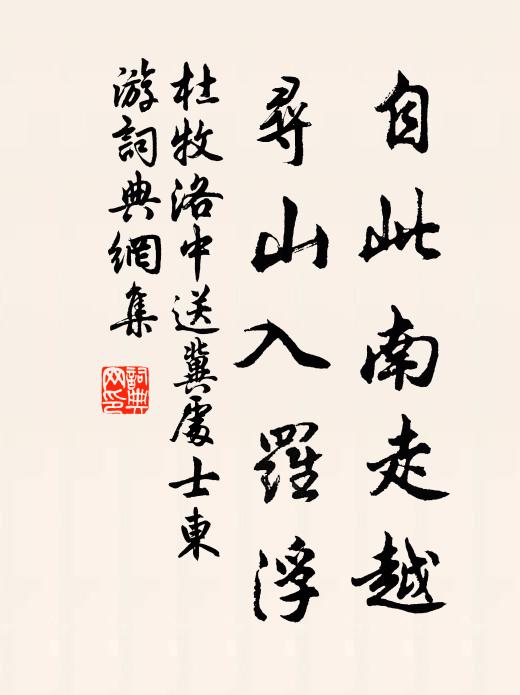 自此南走越
尋山入羅浮
杜牧洛中送冀處士東
游詞典網集
詞典
网印